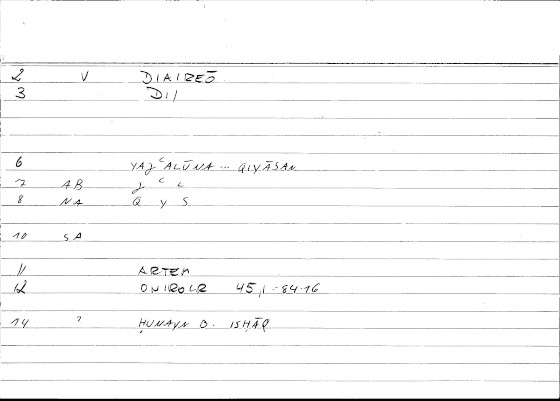 2 V DIAIREŌ
3 DI/
6 YAǦʿALŪNA ... QIYĀSAN
7 AB ǧ ʿ L
8 NA Q Y S
10 SA
11 ARTEM
12 ONIROCR 45,1-84.16
14 ? ḤUNAYN B. ISḤĀQ